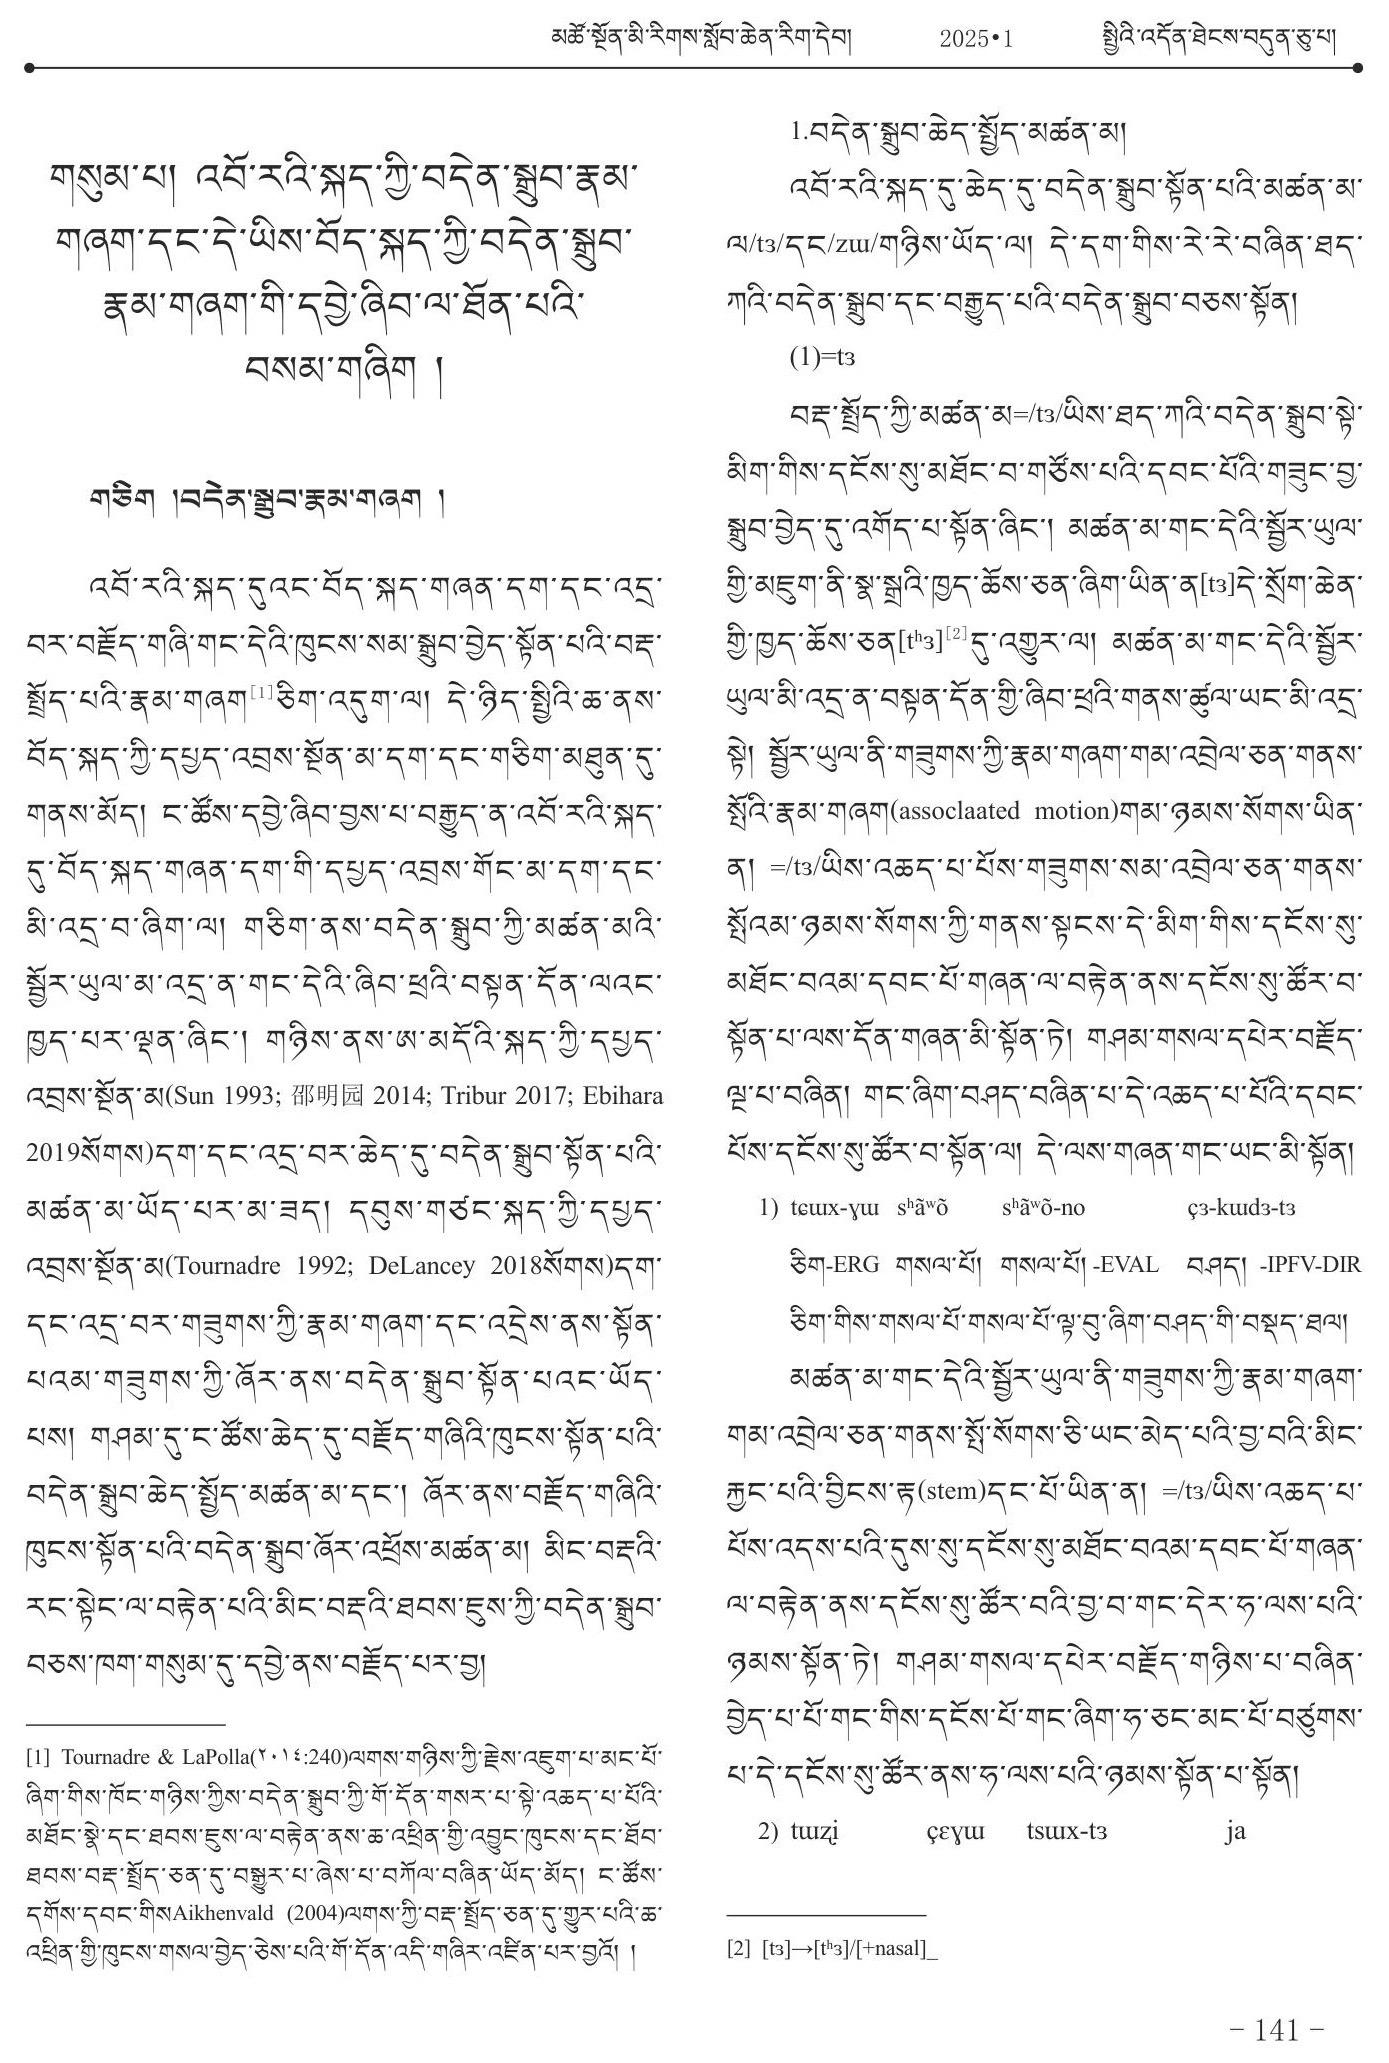 མཚོ་སྔོན་མི་རིགས་སློབ་ཆེན་རིག་དེབ། 2025•1 སྤྱིའི་འདོན་ཐེངས་བདུན་ཅུ་པ།
གསུམ་པ། འབོ་རའི་སྐད་ཀྱི་བདེན་སྒྲུབ་རྣམ་
གཞག་དང་དེ་ཡིས་བོད་སྐད་ཀྱི་བདེན་སྒྲུབ་
རྣམ་གཞག་གི་དབྱེ་ཞིབ་ལ་ཐོན་པའི་
བསམ་གཞིག །
གཅིག །བདེན་སྒྲུབ་རྣམ་གཞག །
འབོ་རའི་སྐད་དུའང་བོད་སྐད་གཞན་དག་དང་འདྲ་
བར་བརྗོད་གཞི་གང་དེའི་ཁུངས་སམ་སྒྲུབ་བྱེད་སྟོན་པའི་བརྡ་
སྤྲོད་པའི་རྣམ་གཞག[1]ཅིག་འདུག་ལ། དེ་ཉིད་སྤྱིའི་ཆ་ནས་
བོད་སྐད་ཀྱི་དཔྱད་འབྲས་སྔོན་མ་དག་དང་གཅིག་མཐུན་དུ་
གནས་མོད། ང་ཚོས་དབྱེ་ཞིབ་བྱས་པ་བརྒྱུད་ན་འབོ་རའི་སྐད་
དུ་བོད་སྐད་གཞན་དག་གི་དཔྱད་འབྲས་གོང་མ་དག་དང་
མི་འདྲ་བ་ཞིག་ལ། གཅིག་ནས་བདེན་སྒྲུབ་ཀྱི་མཚན་མའི་
སྦྱོར་ཡུལ་མ་འདྲ་ན་གང་དེའི་ཞིབ་ཕྲའི་བསྟན་དོན་ལའང་
ཁྱད་པར་ལྡན་ཞིང་། གཉིས་ནས་ཨ་མདོའི་སྐད་ཀྱི་དཔྱད་
འབྲས་སྔོན་མ(Sun 1993; 邵明园 2014; Tribur 2017; Ebihara
2019སོགས)དག་དང་འདྲ་བར་ཆེད་དུ་བདེན་སྒྲུབ་སྟོན་པའི་
མཚན་མ་ཡོད་པར་མ་ཟད། དབུས་གཙང་སྐད་ཀྱི་དཔྱད་
འབྲས་སྔོན་མ(Tournadre 1992; DeLancey 2018སོགས)དག་
དང་འདྲ་བར་གཟུགས་ཀྱི་རྣམ་གཞག་དང་འདྲེས་ནས་སྟོན་
པའམ་གཟུགས་ཀྱི་ཞོར་ནས་བདེན་སྒྲུབ་སྟོན་པའང་ཡོད་
པས། གཤམ་དུ་ང་ཚོས་ཆེད་དུ་བརྗོད་གཞིའི་ཁུངས་སྟོན་པའི་
བདེན་སྒྲུབ་ཆེད་སྤྱོད་མཚན་མ་དང་། ཞོར་ནས་བརྗོད་གཞིའི་
ཁུངས་སྟོན་པའི་བདེན་སྒྲུབ་ཞོར་འཕྲོས་མཚན་མ། མིང་བརྡའི་
རང་སྟེང་ལ་བརྟེན་པའི་མིང་བརྡའི་ཐབས་ཇུས་ཀྱི་བདེན་སྒྲུབ་
བཅས་ཁག་གསུམ་དུ་དབྱེ་ནས་བརྗོད་པར་བྱ།
[1] Tournadre & LaPolla(٢٠١٤:240)ལགས་གཉིས་ཀྱི་རྗེས་འཇུག་པ་མང་པོ་
ཞིག་གིས་ཁོང་གཉིས་ཀྱིས་བདེན་སྒྲུབ་ཀྱི་གོ་དོན་གསར་པ་སྟེ་འཆད་པ་པོའི་
མཐོང་སྣེ་དང་ཐབས་ཇུས་ལ་བརྟེན་ནས་ཆ་འཕྲིན་གྱི་འབྱུང་ཁུངས་དང་ཐོབ་
ཐབས་བརྡ་སྤྲོད་ཅན་དུ་བསྒྱུར་པ་ཞེས་པ་བཀོལ་བཞིན་ཡོད་མོད། ང་ཚོས་
དགོས་དབང་གིསAikhenvald (2004)ལགས་ཀྱི་བརྡ་སྤྲོད་ཅན་དུ་གྱུར་པའི་ཆ་
འཕྲིན་གྱི་ཁུངས་གསལ་བྱེད་ཅེས་པའི་གོ་དོན་འདི་གཞིར་འཛིན་པར་བྱའོ། །
1.བདེན་སྒྲུབ་ཆེད་སྤྱོད་མཚན་མ།
འབོ་རའི་སྐད་དུ་ཆེད་དུ་བདེན་སྒྲུབ་སྟོན་པའི་མཚན་མ་
ལ/tɜ/དང/zɯ/གཉིས་ཡོད་ལ། དེ་དག་གིས་རེ་རེ་བཞིན་ཐད་
ཀའི་བདེན་སྒྲུབ་དང་བརྒྱུད་པའི་བདེན་སྒྲུབ་བཅས་སྟོན།
(1)=tɜ
བརྡ་སྤྲོད་ཀྱི་མཚན་མ=/tɜ/ཡིས་ཐད་ཀའི་བདེན་སྒྲུབ་སྟེ་
མིག་གིས་དངོས་སུ་མཐོང་བ་གཙོས་པའི་དབང་པོའི་གཟུང་བྱ་
སྒྲུབ་བྱེད་དུ་འགོད་པ་སྟོན་ཞིང་། མཚན་མ་གང་དེའི་སྦྱོར་ཡུལ་
གྱི་མཇུག་ནི་སྣ་སྒྲའི་ཁྱད་ཆོས་ཅན་ཞིག་ཡིན་ན[tɜ]དེ་སྲོག་ཆེན་
གྱི་ཁྱད་ཆོས་ཅན[tʰɜ][2]དུ་འགྱུར་ལ། མཚན་མ་གང་དེའི་སྦྱོར་
ཡུལ་མི་འདྲ་ན་བསྟན་དོན་གྱི་ཞིབ་ཕྲའི་གནས་ཚུལ་ཡང་མི་འདྲ་
སྟེ། སྦྱོར་ཡུལ་ནི་གཟུགས་ཀྱི་རྣམ་གཞག་གམ་འབྲེལ་ཅན་གནས་
སྤོའི་རྣམ་གཞག(assoclaated motion)གམ་ཉམས་སོགས་ཡིན་
ན། =/tɜ/ཡིས་འཆད་པ་པོས་གཟུགས་སམ་འབྲེལ་ཅན་གནས་
སྤོའམ་ཉམས་སོགས་ཀྱི་གནས་སྟངས་དེ་མིག་གིས་དངོས་སུ་
མཐོང་བའམ་དབང་པོ་གཞན་ལ་བརྟེན་ནས་དངོས་སུ་ཚོར་བ་
སྟོན་པ་ལས་དོན་གཞན་མི་སྟོན་ཏེ། གཤམ་གསལ་དཔེར་བརྗོད་
ལྔ་པ་བཞིན། གང་ཞིག་བཤད་བཞིན་པ་དེ་འཆད་པ་པོའི་དབང་
པོས་དངོས་སུ་ཚོར་བ་སྟོན་ལ། དེ་ལས་གཞན་གང་ཡང་མི་སྟོན།
1) tɕɯx-ɣɯ sʰãʷõ sʰãʷõ-no çɜ-kɯdɜ-tɜ
ཅིག-ERG གསལ་པོ། གསལ་པོ།-EVAL བཤད། -IPFV-DIR
ཅིག་གིས་གསལ་པོ་གསལ་པོ་ལྟ་བུ་ཞིག་བཤད་གི་བསྡད་ཐལ།
མཚན་མ་གང་དེའི་སྦྱོར་ཡུལ་ནི་གཟུགས་ཀྱི་རྣམ་གཞག་
གམ་འབྲེལ་ཅན་གནས་སྤོ་སོགས་ཅི་ཡང་མེད་པའི་བྱ་བའི་མིང་
རྐྱང་པའི་བྱིངས་རྟ(stem)དང་པོ་ཡིན་ན། =/tɜ/ཡིས་འཆད་པ་
པོས་འདས་པའི་དུས་སུ་དངོས་སུ་མཐོང་བའམ་དབང་པོ་གཞན་
ལ་བརྟེན་ནས་དངོས་སུ་ཚོར་བའི་བྱ་བ་གང་དེར་ཧ་ལས་པའི་
ཉམས་སྟོན་ཏེ། གཤམ་གསལ་དཔེར་བརྗོད་གཉིས་པ་བཞིན་
བྱེད་པ་པོ་གང་གིས་དངོས་པོ་གང་ཞིག་ཧ་ཅང་མང་པོ་བཙུགས་
པ་དེ་དངོས་སུ་ཚོར་ནས་ཧ་ལས་པའི་ཉམས་སྟོན་པ་སྟོན།
2) tɯʐi̥ çɛɣɯ tsɯx-tɜ ja
[2] [tɜ]→[tʰɜ]/[+nasal]_
– 141 –